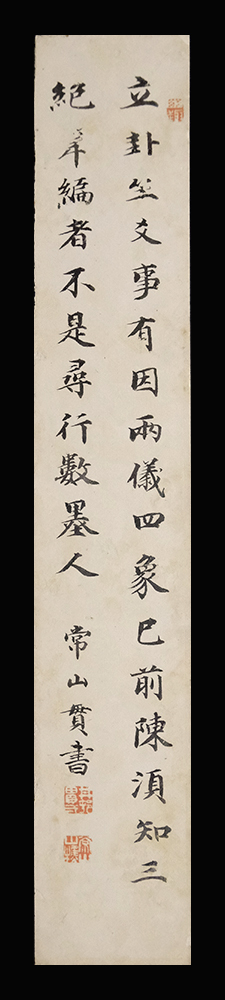 立卦生爻事有因兩儀四象已前陳須知三
絕韋編者不是尋行數墨人 常山貫書